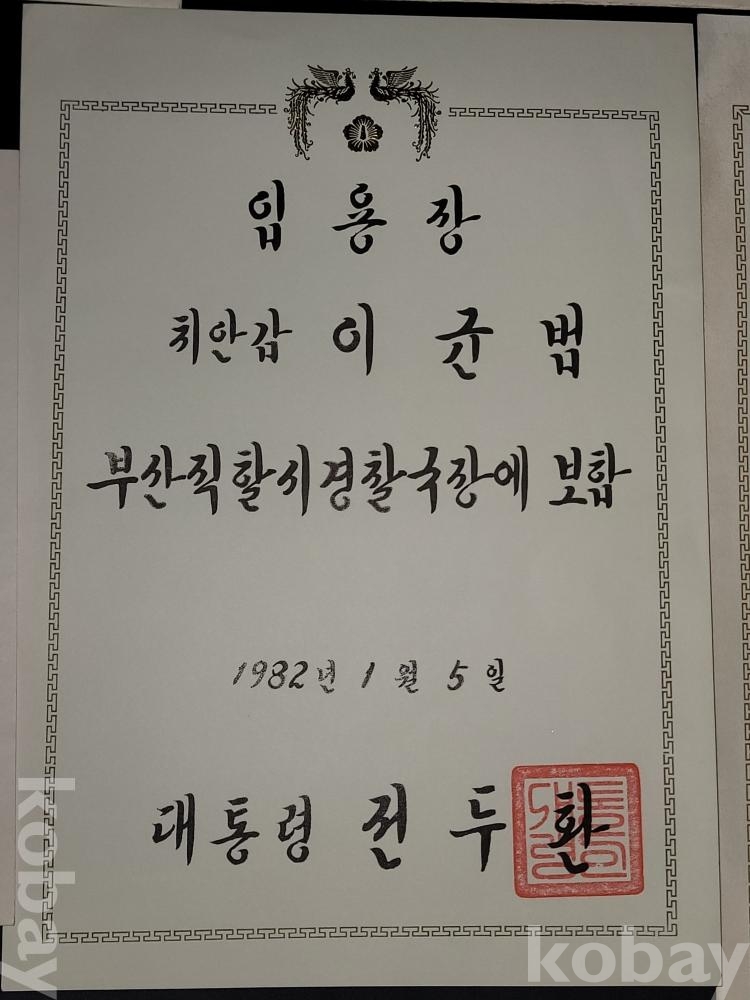 임용장
치안감 이균범
부산직할시경찰국장에 보함
1982년 1월 5일
대통령 전두환
kobay
kobay